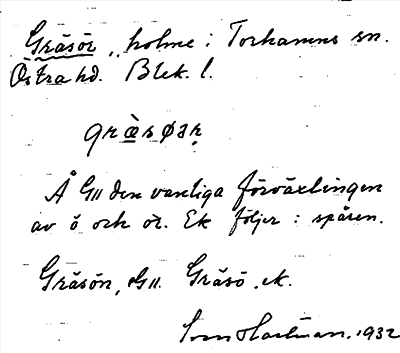 Gräsör, holme i Torhamns sn.
Östra hd. Blek. l.
græ̀søaṛ
Å GU den vanliga förväxlingen
av ö och ör. Ek följer i spåren.
Gräsön, GU. Gräsö, ek.
1932